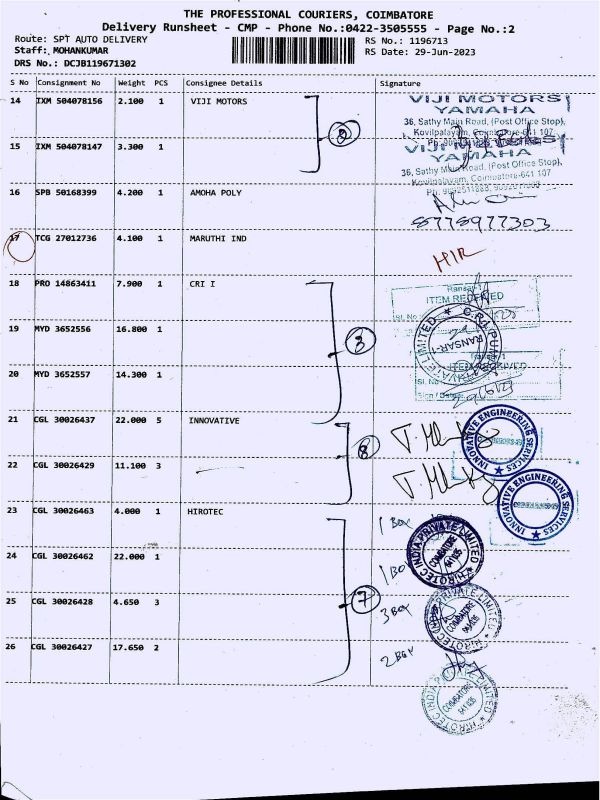 THE PROFESSIONAL COURIERS, COIMBATORE
Delivery Runsheet - CMP - Phone No.:0422-3505555 - Page No.:2
Route: SPT AUTO DELIVERY
RS No.: 1196713
Staff: MOHANKUMAR
RS Date: 29-Jun-2023
DRS No.: DCJB119671302
S No Consignment No Weight PCS Consignee Details Signature
14 IXM 504078156 2.100 1 VIJI MOTORS
VIJI MOTORS
YAMAHA
36, Sathy Main Road, (Post Office Stop),
Kovilpalayam, Coimbatore-641 107
2
15 IXM 504078147 3.300 1
VIJI MOTORS
YAMAHA
36, Sathy Main Road, (Post Office Stop),
Kovilpalayam, Coimbatore-641 107
16 SPB 50168399 4.200 1 AMOHA POLY
8778977303
17 TCG 27012736 4.100 1 MARUTHI IND
HIR
18 PRO 14863411 7.900 1 CRI I
Ransar-1
ITEM RECEIVED
19 MYD 3652556 16.800 1
3
RANSAR-1
Ransar-1
ITEM RECEIVED
20 MYD 3652557 14.300 1
21 CGL 30026437 22.000 5 INNOVATIVE
8
INNOVATIVE ENGINEERING SERVICES
22 CGL 30026429 11.100 3
INNOVATIVE ENGINEERING SERVICES
23 CGL 30026463 4.000 1 HIROTEC
1 Box
HIROTEC INDIA PRIVATE LIMITED
COIMBATORE
641 105
24 CGL 30026462 22.000 1
1 Box
25 CGL 30026428 4.650 3
7
3 Box
HIROTEC INDIA PRIVATE LIMITED
COIMBATORE
641 105
26 CGL 30026427 17.650 2
2 Box
HIROTEC INDIA PRIVATE LIMITED
COIMBATORE
641 105